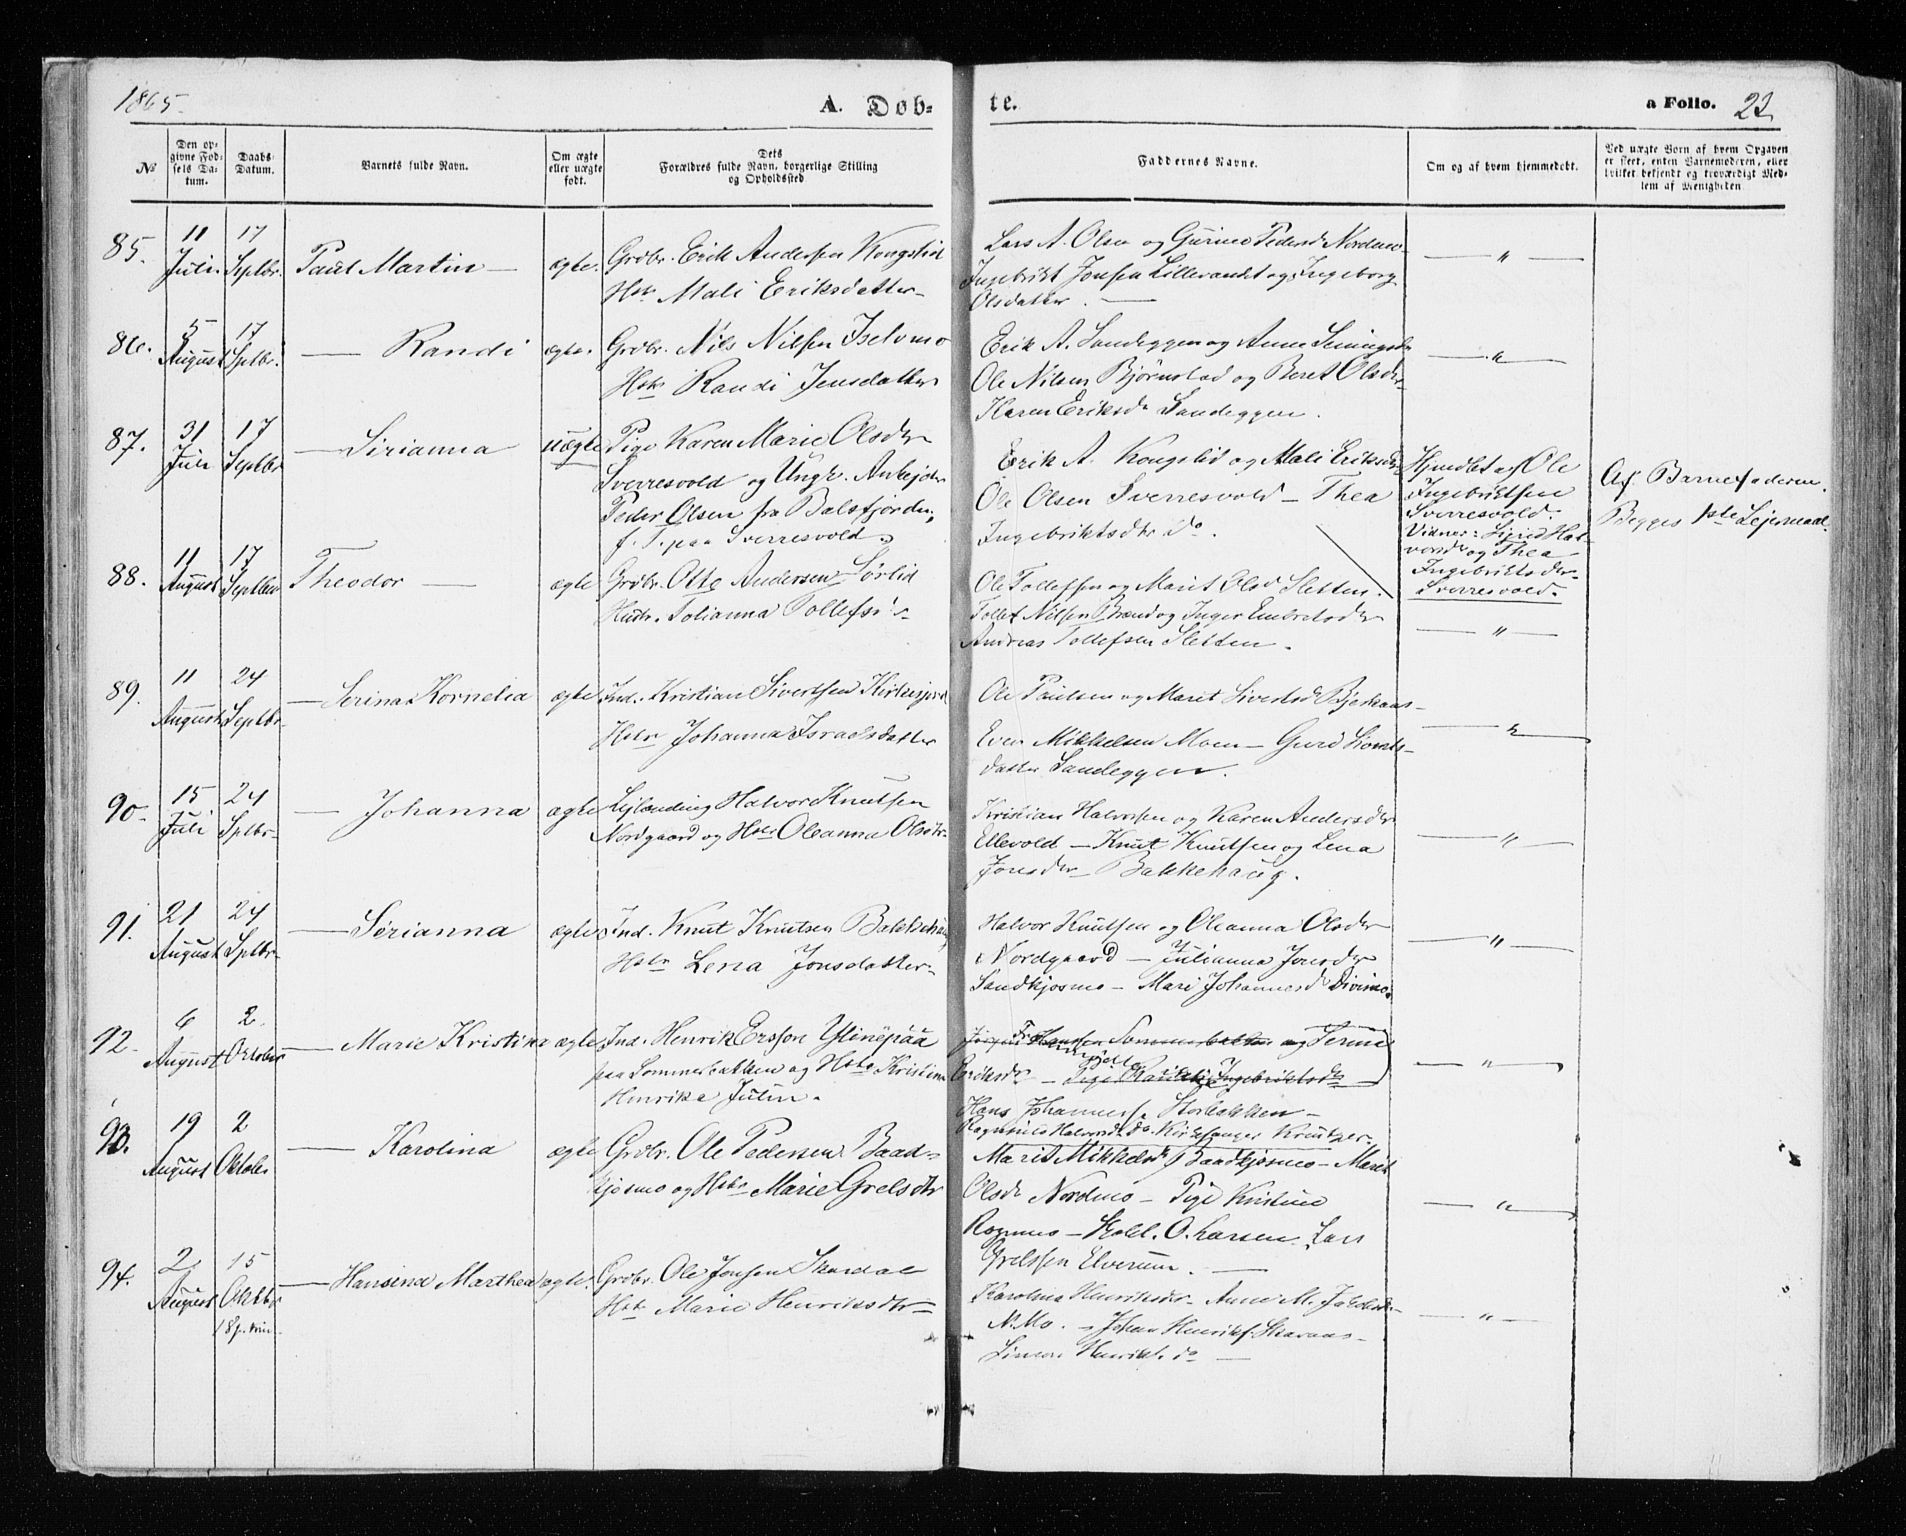 1865.
A. Døb-
te.
a Folio. 23
№
Den op-
givne Fød-
sels Da-
tum.
Daabs-
Datum.
Barnets fulde Navn.
Om ægte
eller uægte
født.
Dets
Forældres fulde Navn, borgerlige Stilling
og Opholdssted
Faddernes Navne.
Om og af hvem hjemmedøbt.
Ved uægte Børn af hvem Opgaven
er skeet, enten Barnemoderen, eller
hvilket bekjendt og troværdigt Med-
lem af Menigheden
85. 11 Juli. 17 Septbr. Paul Martin — ægte.
Grdbr. Erik Andersen Kongslid
Hstr Mali Eriksdatter
Lars A. Olsen og Gurine Pedersd Nordmo
Ingebrikt Jonsen Lillevandet og Ingeborg
Olsdatter. —
— " —
86. 5 August 17 Sptbr. — Randi ægte.
Grdbr. Nils Nilsen Iselvmo
Hstr Randi Jensdatter
Erik A. Sandeggen og Anne
Ole Nilsen Bjørnstad og Beret Olsdr
Karen Eriksdr Sandeggen.
— " —
87. 31 Juli 17 Septbr — Sirianna uægte
Pige Karen Marie Olsdr
Sverresvold og Ungk. Arbejder
Peder Olsen fra Balsfjorden,
f. T. paa Sverresvold
Erik A. Kongslid og Mali Eriksdr
Ole Olsen Sverresvold — Thea
Ingebriktsdtr do
Hjmdbt af Ole
Ingebriktsen
Sverresvold.
Vidner: Sigrid Hal-
vorsdr og Thea
Ingebriktsdr
Sverresvold.
Af Barnefaderen.
Begges 1ste Lejermaal.
88. 11 August 17 Septber Theodor — ægte
Grdbr. Otte Andersen Sørlid
Hustr. Johanna Tollefsd
Ole Tollefsen og Marit Olsd Sletten.
Tollef Nilsen Brænd og Inger Embretsdr
Andreas Tollefsen Sletten.
— " —
89. 11 August 24 Septbr — Serina Kornelia ægte
Ind. Kristian Sivertsen Kirkesjord
Hstr Johanna Israelsdatter
Ole Paulsen og Marit Sivertsd Bjerkaas
Even Mikkelsen Moen — Guri Siverts-
datter Sandeggen.
— " —
90. 15 Juli 24 Sptbr — Johanna ægte
Lejlænding Halvor Knutsen
Nordgaard og Hstr Oleanna Olsdtr
Kristian Halvorsen og Karen Andersdr
Ellevold — Knut Knutsen og Lena
Jonsdr Bakkehaug.
— " —
91. 21 August 24 Sptbr — Serianna ægte
Ind. Knut Knutsen Bakkehaug
Hstr Lena Jonsdatter
Halvor Knutsen og Oleanna Olsdr
Nordgaard — Julianna Jonsdr
Sandkjosmo — Mari Johannesd Divimo
— " —
92. 6 August 2 October — Marie Kristina ægte
Ind. Henrik Ersson Ylinepää
paa Sommerbakken og Hstr Kristina
Henrika Julin.
Hansen Sommerbakken og
Eriksdr — Pige Ingebriktsdr
Hans Johannessen Storbakken —
Ragnhild Halvorsdr do. Kirkesanger Kreutzer.
— " —
93. 19 August 2 October — Karolina ægte
Grdbr. Ole Pedersen Baad-
kjosmo og Hstr Marie Grelsdtr
Marit Mikkelsd Baadkjosmo — Marit
Olsdr Nordmo — Pige Kristine
Rognmo — Skoll. O. Larsen. Lars
Grelssen Elverum. —
— " —
94. 2 August 15 Oktbr — Hansina Marthea ægte.
Grdbr. Ole Jonsen Skardal
Hstr Marie Henriksdtr
Karolina Henriksdr — Anne M.
N. Mo. — Johan Henriks. —
Henriks. do —
— " —